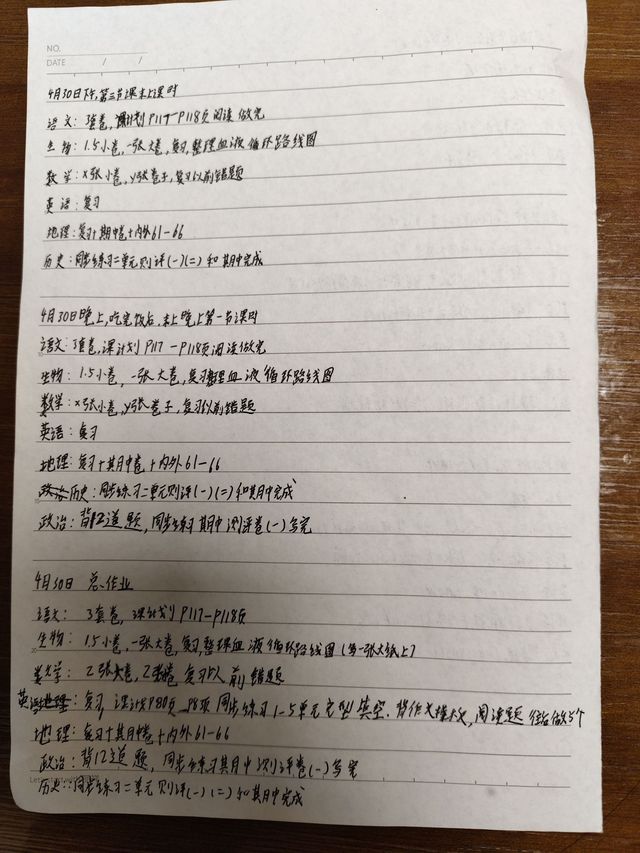 NO.
DATE / /
4月30日下午,第三节课未上课时
语文: 3套卷, 课计划P117-P118页阅读 做完
生物: 1.5小卷,一张大卷,复习,整理血液循环路线图
数学: x张小卷, y张卷子, 复习以前错题
英语: 复习
地理: 复习+期中卷+内外61-66
历史: 同步练习二单元测评(一)(二)和期中完成
4月30日晚上,吃完饭后,未上晚上第一节课时
语文: 3套卷,课计划P117-P118页阅读做完
生物: 1.5小卷,一张大卷,复习整理血液循环路线图
数学: x张小卷, y张卷子, 复习以前错题
英语: 复习
地理: 复习+期中卷+内外61-66
历史: 同步练习二单元测评(一)(二)和期中完成
政治: 背12道题, 同步练习期中测评卷(一)写完
4月30日 总作业
语文: 3套卷, 课计划P117-P118页
生物: 1.5小卷,一张大卷,复习,整理血液循环路线图(写一张大纸上)
数学: 2张大卷, 复习以前错题
英语: 复习, 课计划P80页 同步练习1-5单元完型填空. 背作文, 阅读题 做5个
地理: 复习+期中卷+内外61-66
政治: 背12道题, 同步练习期中测评卷(一)写完
历史: 同步练习二单元测评(一)(二)和期中完成